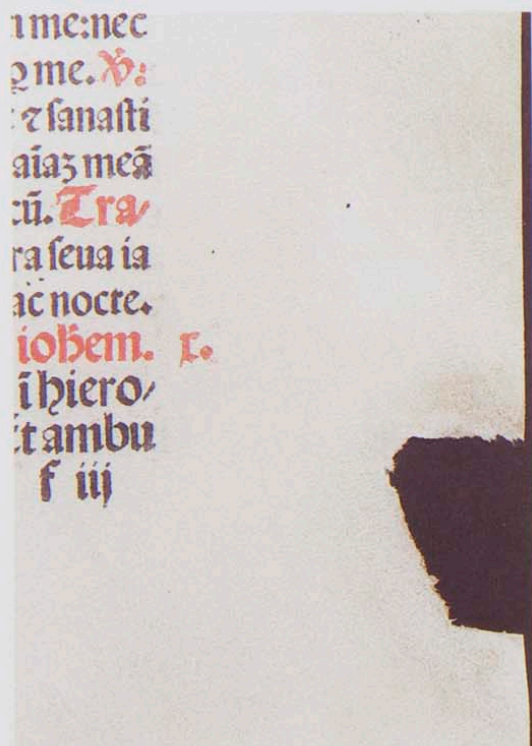 me:nec
me. ℣:
⁊ ſanaſti
aīaꝫ meā
cū. Tra⸗
ra ſeua ia
ac nocte.
iohem. x.
ī hiero⸗
it ambu
f iij